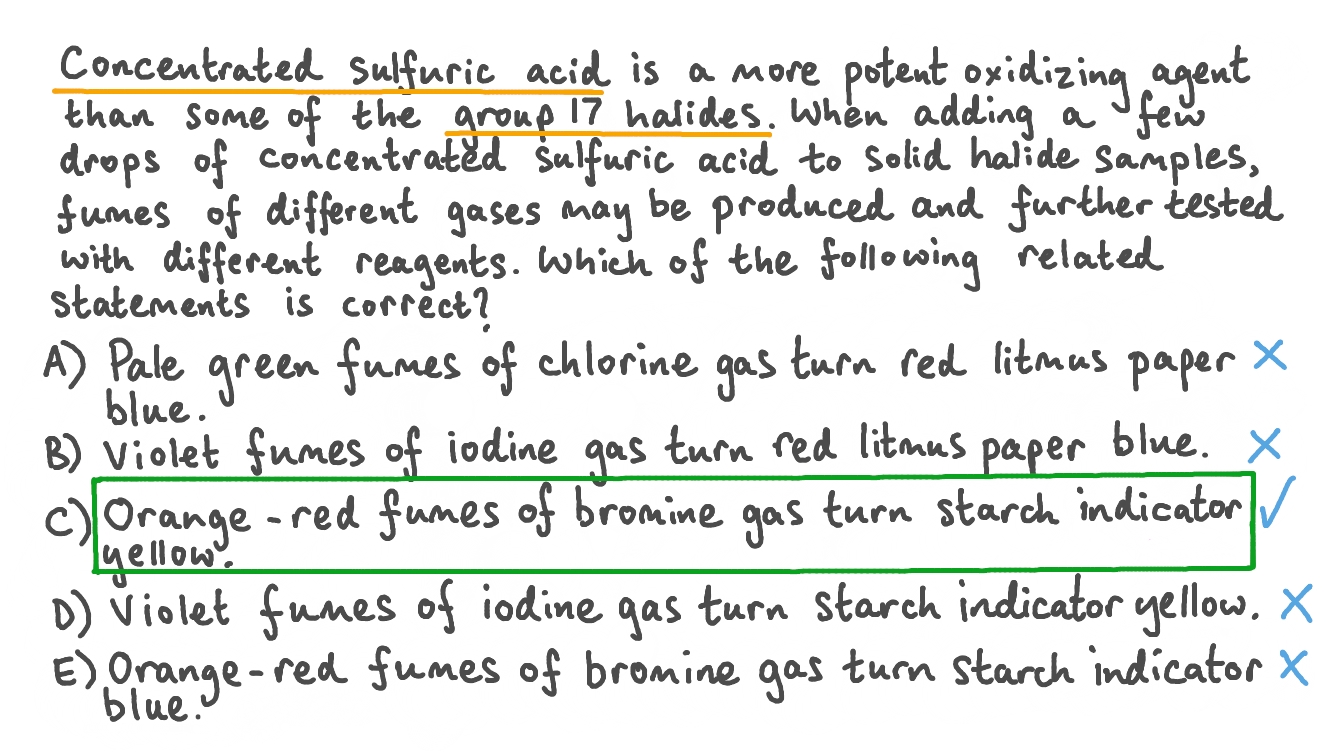 Concentrated sulfuric acid is a more potent oxidizing agent
than some of the group 17 halides. When adding a few
drops of concentrated sulfuric acid to solid halide samples,
fumes of different gases may be produced and further tested
with different reagents. Which of the following related
statements is correct?
A) Pale green fumes of chlorine gas turn red litmus paper
blue.
B) Violet fumes of iodine gas turn red litmus paper blue.
C) Orange-red fumes of bromine gas turn starch indicator
yellow.
D) Violet fumes of iodine gas turn starch indicator yellow.
E) Orange-red fumes of bromine gas turn starch indicator
blue.